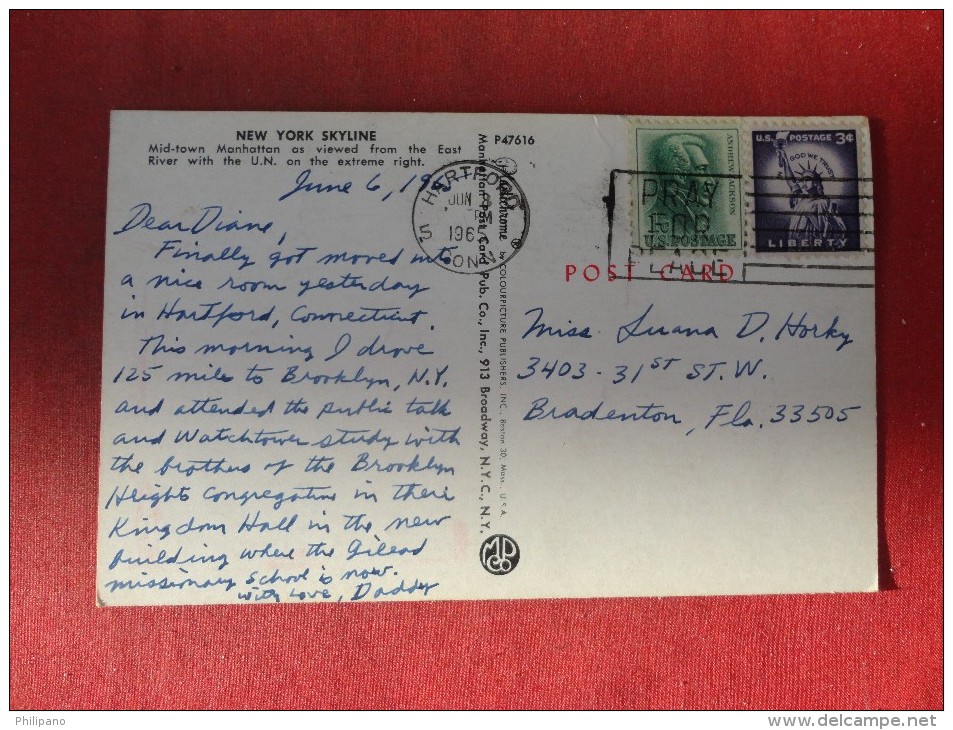 NEW YORK SKYLINE
Mid-town Manhattan as viewed from the East
River with the U.N. on the extreme right.
June 6, 19
Dear Diane,
Finally got moved into
a nice room yesterday
in Hartford, Connecticut.
This morning I drove
125 miles to Brooklyn, N.Y.
and attended the public talk
and Watchtower study with
the brothers of the Brooklyn
Heights Congregation in their
Kingdom Hall in the new
building where the Gilead
missionary school is now.
with love, Daddy
P47616
Manhattan Post Card Pub. Co., Inc., 913 Broadway, N.Y.C., N.Y.
by COLOURPICTURE PUBLISHERS, INC., Boston 30, Mass., U.S.A.
HARTFORD
JUN
1965
CONN
PRAY
FOR
ANDREW JACKSON
1¢
U.S. POSTAGE
U.S. POSTAGE 3¢
IN GOD WE TRUST
LIBERTY
POST CARD
Miss Luana D. Horky
3403-31ST ST. W.
Bradenton, Fla. 33505
MPC
Co
Philipano
www.delcampe.net